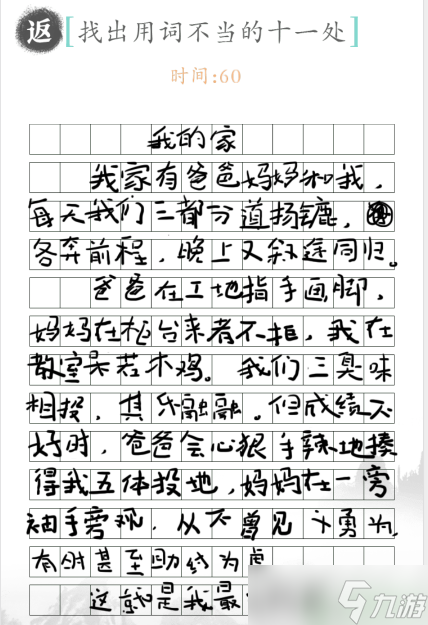 返 [找出用词不当的十一处]
时间:60
我的家
我家有爸爸妈妈和我，
每天我们三都分道扬镳，
各奔前程，晚上又殊途同归。
爸爸在工地指手画脚，
妈妈在柜台来者不拒，我在
教室呆若木鸡。我们三臭味
相投，其乐融融。但成绩不
好时，爸爸会心狠手辣地揍
得我五体投地，妈妈在一旁
袖手旁观，从不曾见 勇为，
有时甚至助纣为虐
这就是我最
九游